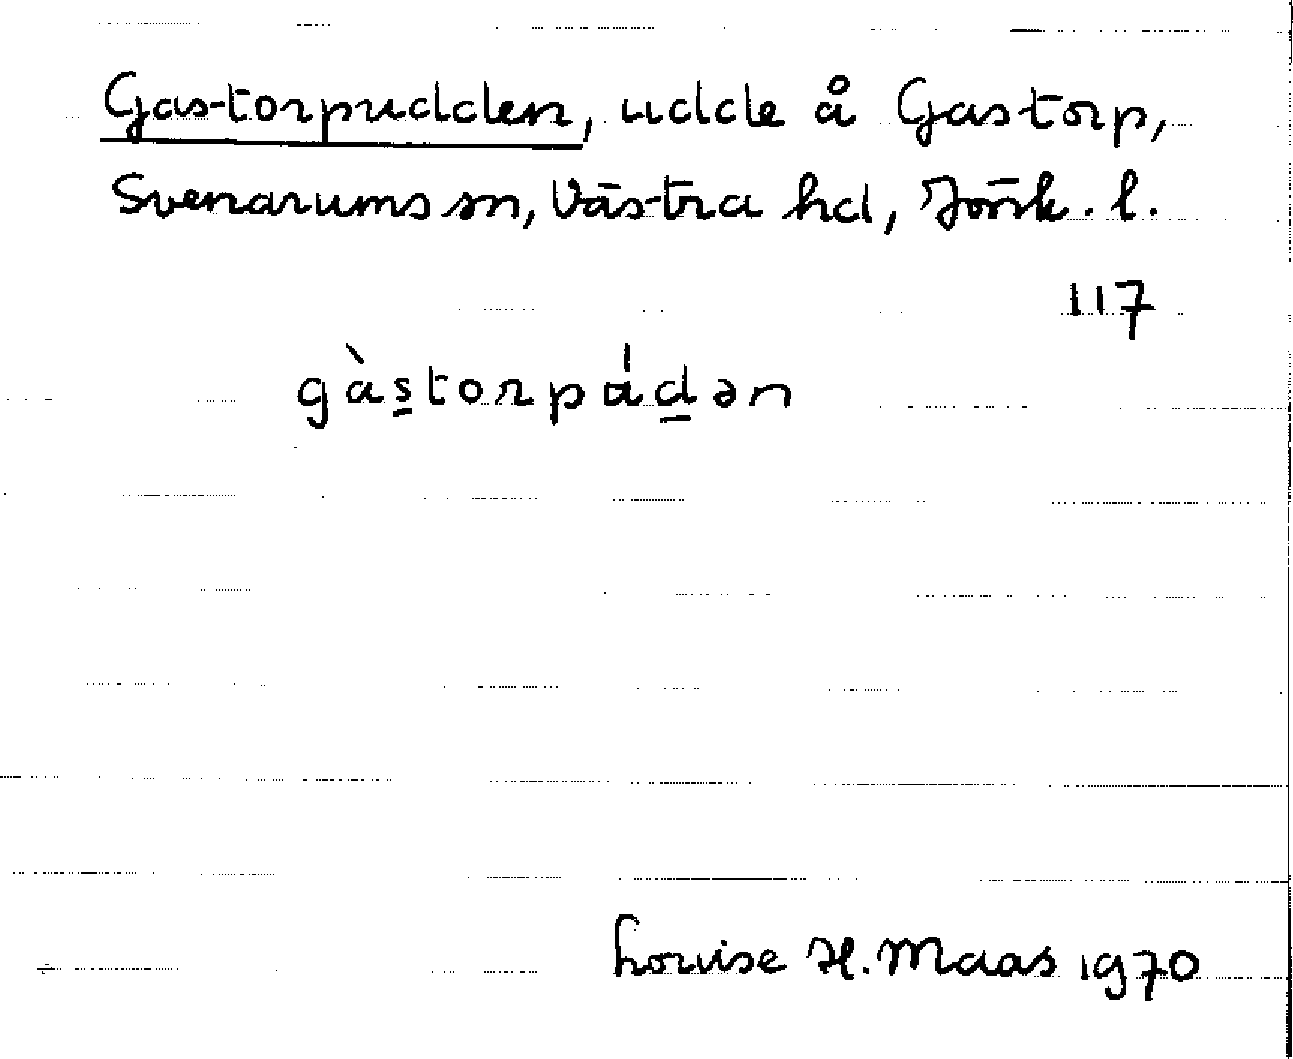 Gastorpudden, udde å Gastorp,
Svenarums sn, Västra hd, Jönk. l.
117
gàs̲torpád̲ən
Louise H. Maas 1970